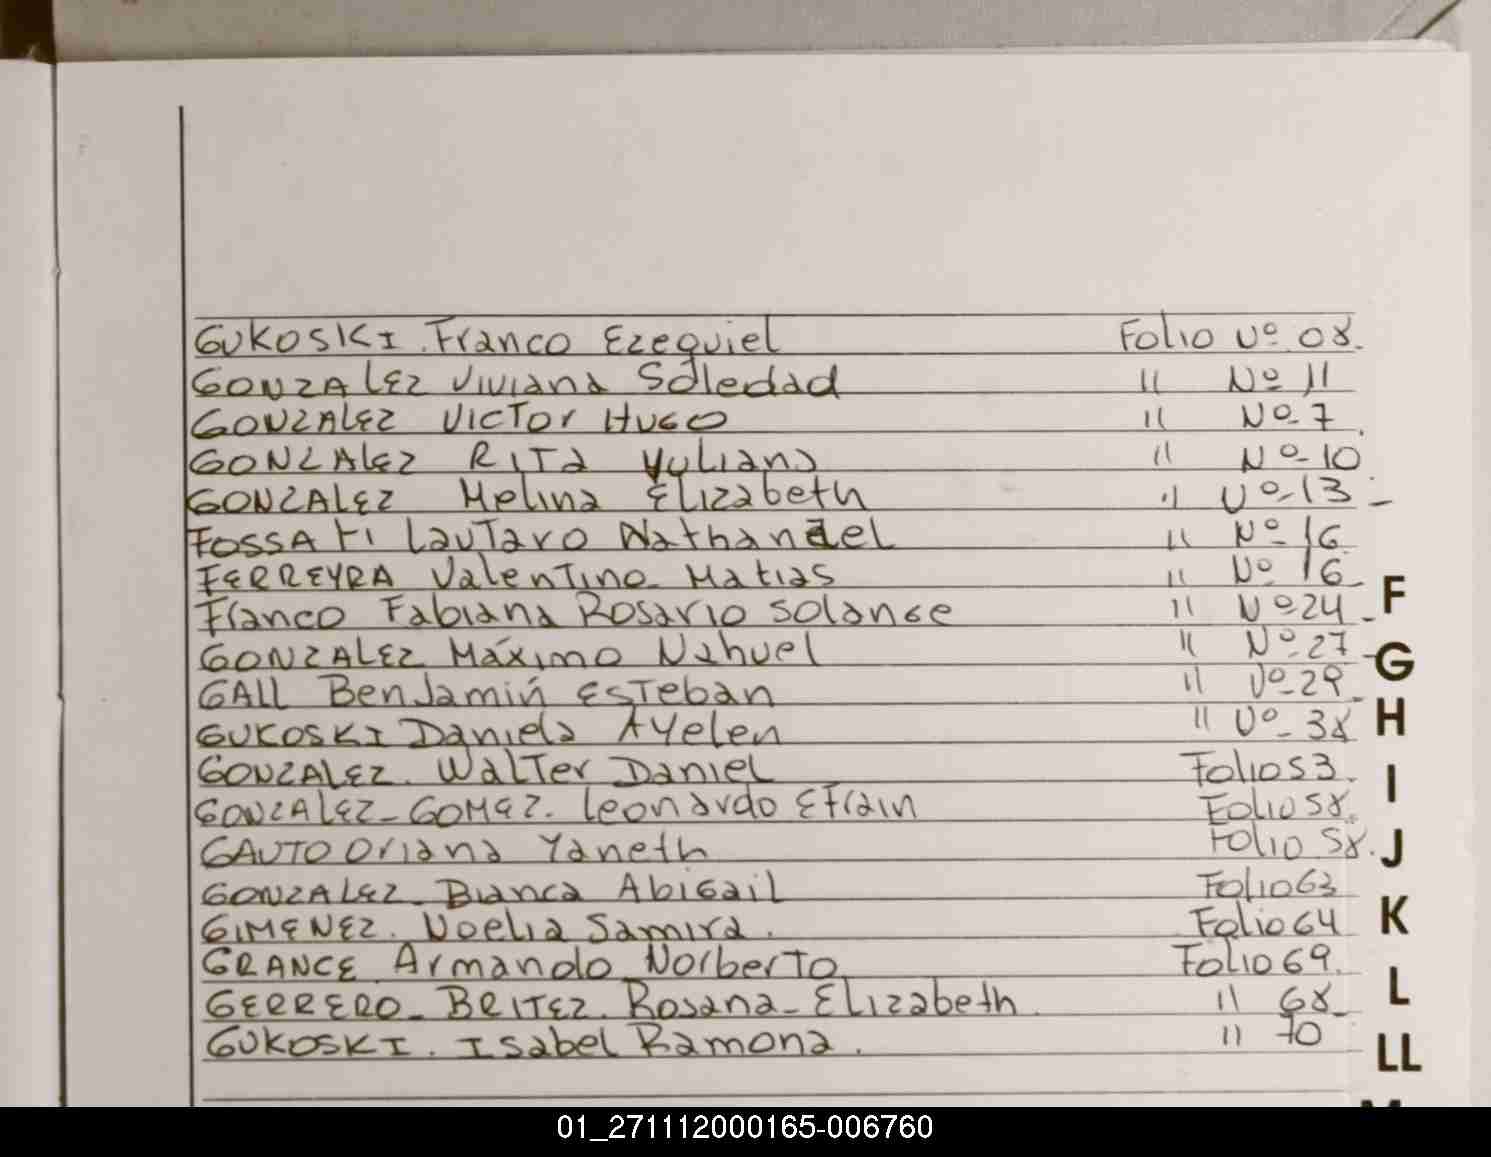 GUKOSKI. Franco Ezequiel Folio Nº 08.
GONZALEZ Viviana Soledad " Nº 11
GONZALEZ VICTOR HUGO " Nº 7
GONZALEZ RITA Yuliana " Nº 10
GONZALEZ Melina Elizabeth " Nº 13
FOSSATI Lautaro Nathanael " Nº 16
FERREYRA Valentino Matias " Nº 16
Franco Fabiana Rosario Solange " Nº 24
GONZALEZ Máximo Nahuel " Nº 27
GALL Benjamín Esteban " Nº 29
GUKOSKI Daniela Ayelen " Nº 38
GONZALEZ. Walter Daniel Folio 53.
GONZALEZ-GOMEZ. Leonardo Efrain Folio 58.
GAUTO Oriana Yaneth Folio 58.
GONZALEZ Bianca Abigail Folio 63
GIMENEZ. Noelia Samira. Folio 64
GRANCE Armando Norberto Folio 69.
GERRERO-BRITEZ. Rosana-Elizabeth. " 68
GUKOSKI. Isabel Ramona. " 70
F
G
H
I
J
K
L
LL
M
01_271112000165-006760